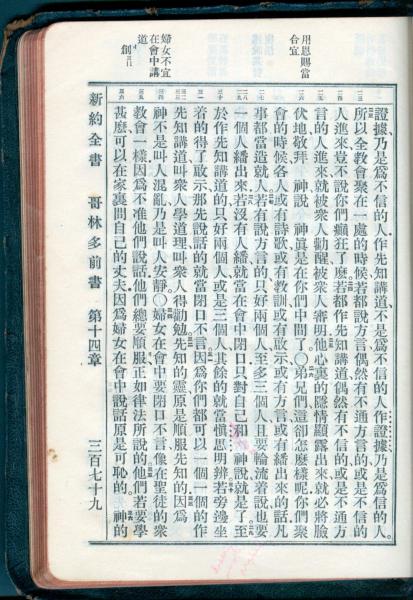 用恩賜當
合宜
婦女不宜
在會中講
道
證據乃是爲不信的人作先知講道不是爲不信的人作證據乃是爲信的人。
所以全教會聚在一處的時候若都說方言偶然有不通方言的或是不信的
人進來豈不說你們癲狂了麽若都作先知講道偶然有不信的或是不通方
言的人進來就被衆人勸醒被衆人審明他心裏的隱情顯露出來就必將臉
伏地敬拜　神說　神眞是在你們中間了〇弟兄們這卻怎麽樣呢你們聚
會的時候各人或有詩歌或有教訓或有啟示或有方言或有繙出來的話凡
事都當造就人若有說方言的只好兩個人至多三個人且要輪流着說也要
一個人繙出來若沒有人繙就當在會中閉口只對自己和　神說就是了至
於作先知講道的只好兩個人或是三個人其餘的就當愼思明辨若旁邊坐
着的得了啟示那先說話的就當閉口不言因爲你們都可以一個一個的作
先知講道叫衆人學道理叫衆人得勸勉先知的靈原是順服先知的因爲
神不是叫人混亂乃是叫人安靜〇婦女在會中要閉口不言像在聖徒的衆
教會一樣因爲不准他們說話他們總要順服正如律法所說的他們若要學
甚麽可以在家裏問自己的丈夫因爲婦女在會中說話原是可恥的　神的
新約全書　哥林多前書　第十四章　三百七十九